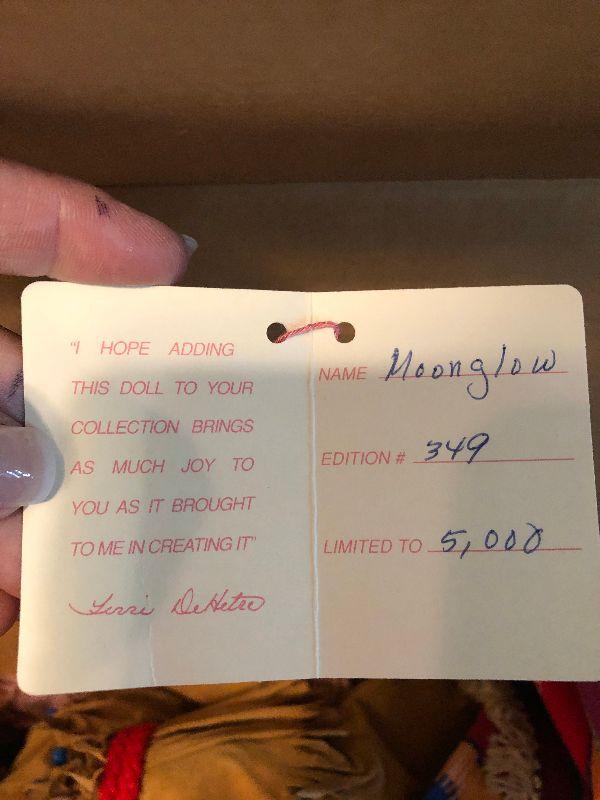 "I HOPE ADDING
THIS DOLL TO YOUR
COLLECTION BRINGS
AS MUCH JOY TO
YOU AS IT BROUGHT
TO ME IN CREATING IT"
Terri DeHetre
NAME Moonglow
EDITION # 349
LIMITED TO 5,000